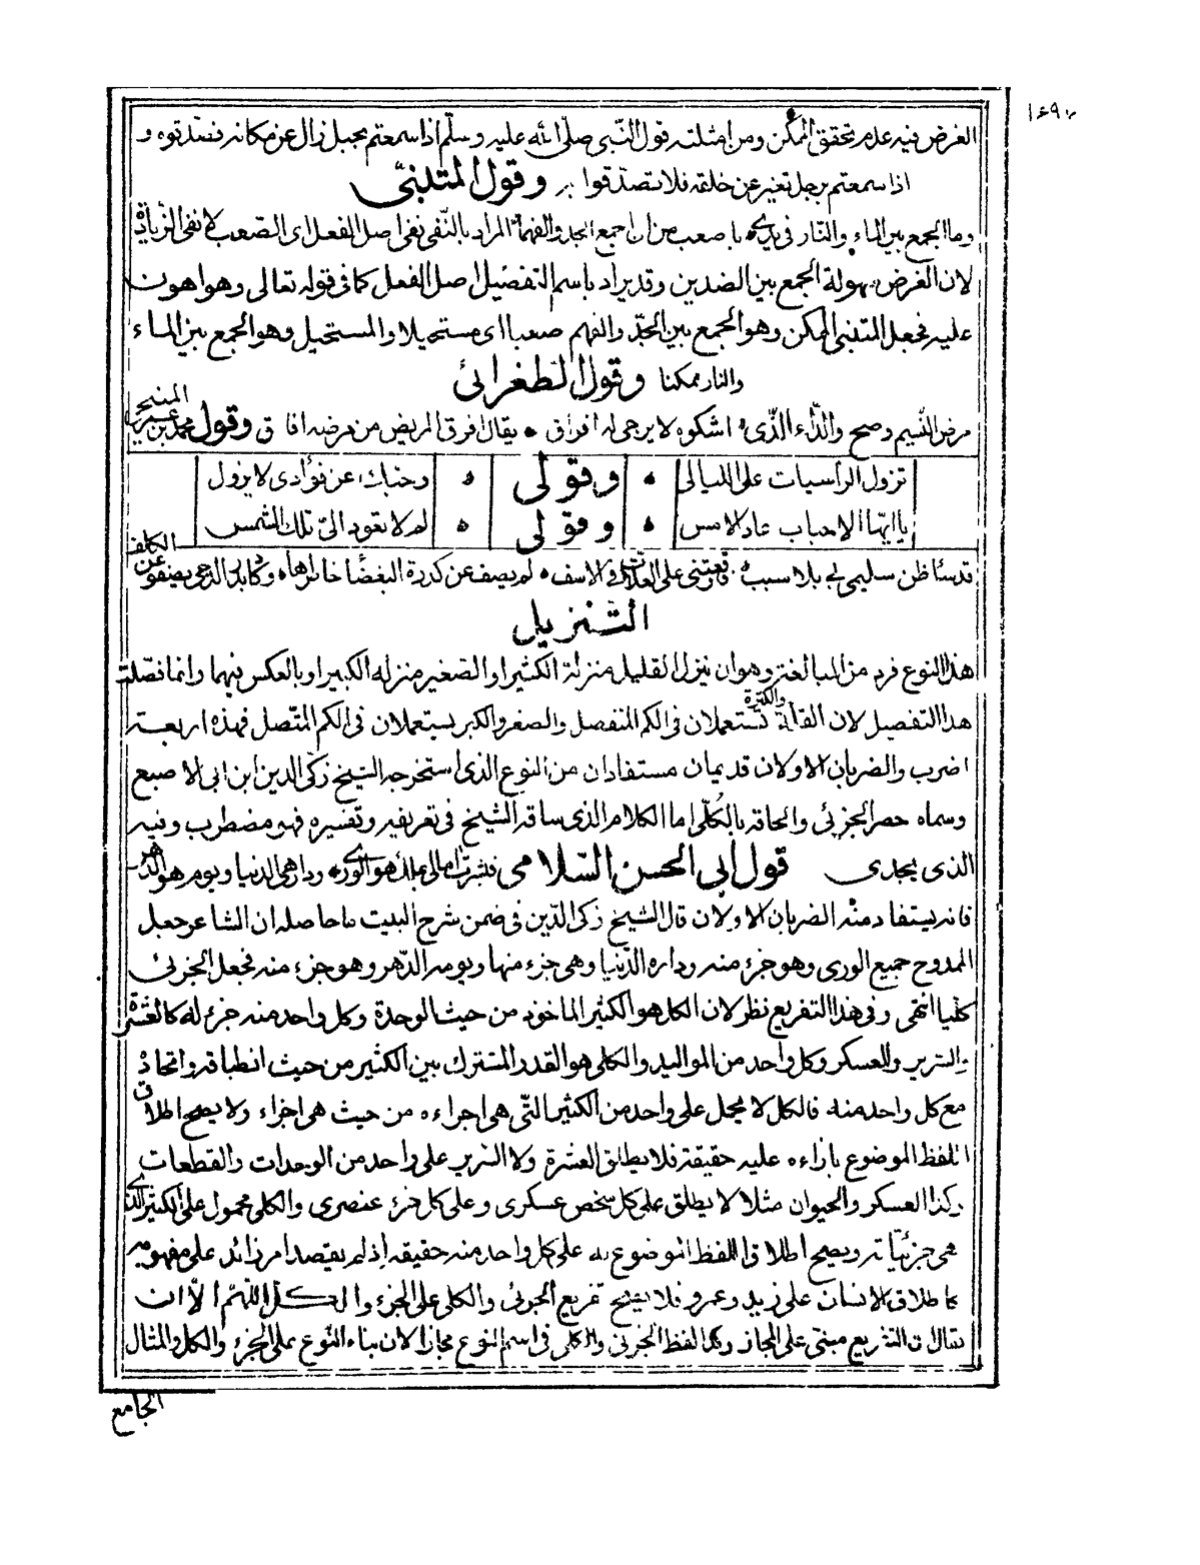 الغرض فيه عدم تحقق الممكن ومن امثلته قول النّبي صلّى الله عليه وسلّم اذا سمعتم بجبل زال عن مكانه فصدّقوه و
اذا سمعتم برجل تغير عن خلقه فلا تصدّقوا به وقول المتنبّي
وما الجمع بين الماء والنّار في يدي ه باصعب من ان اجمع الجد والفهما المراد بالنّفي نفي اصل الفعل اى الصّعب لا نفى الزّيادة
لان الغرض سهولة الجمع بين الضدين وقد يراد باسم التفضيل اصل الفعل كما فى قوله تعالى وهو اهون
عليه فجعل المتنبى الممكن وهو الجمع بين الجدّ والفهم صعبا اى مستحيلا والمستحيل وهو الجمع بين الماء
والنار ممكنا وقول الطغرائي
مرض النّسيم وصح والدّاء الذّى ه اشكوه لا يرجى له افراق ه يقال افرق المريض من مرضه افاق وقول محمد بن عمر المنبجي
تزول الرأسيات على الليالى ه وقولى ه وحبك عن فؤادى لا يزول
يا ايّها الاحباب عاد الامس ه وقولى ه لم لا يعود الىّ تلك الشمس
قد ساء ظن سليمى بى بلا سبب ه فاوقعتنى على العلات فى الاسف ه لم يصف عن كدرة البغضاء خاطرها ه وكاد بدر الدجى يصفو عن الكلف
التنزيل
هذا النوع فرد من المبالغة وهو ان ينزل القليل منزلة الكثير او الصغير منزله الكبير او بالعكس فيهما وانما فصّلت
هذا التفصيل لان القلة والكثرة تستعملان فى الكم المنفصل والصغر والكبر يستعملان فى الكم المتّصل فهذه اربعة
اضرب والضربان الاولان قديمان مستفادان من النوع الذى استخرجه الشيخ زكى الدين ابن ابى الاصبع
وسماه حصر الجزئي والحاقه بالكلّى اما الكلام الذى ساقه الشيخ فى تعريفه وتفسيره فهو مضطرب وفيه
الذى يجدى قول ابى الحسن السّلامى فبشرت امالى بملك هو الورى ه ودار هى الدنيا ويوم هو الدّهر
فانه يستفاد منه الضربان الاولان قال الشيخ زكى الدّين فى ضمن شرح البيت ما حاصله ان الشاعر جعل
الممدوح جميع الورى وهو جزء منه وداره الدّنيا وهى جزء منها ويومه الدّهر وهو جزء منه فجعل الجزئى
كليا انتهى وفى هذا التفريع نظر لان الكل هو الكثير الماخوذ من حيث الوحدة وكل واحد منه جزء له كالعشرة
والسّرير والعسكر وكل واحد من المواليد والكلى هو القدر المشترك بين الكثير من حيث انطباقه واتحاده
مع كل واحد منه فالكل لا يحمل على واحد من الكثير التّى هى اجزاءه من حيث هى اجزاء ولا يصح اطلاق
اللفظ الموضوع بازاءه عليه حقيقة فلا يطلق العشرة ولا السّرير على واحد من الوحدات والقطعات
وكذا العسكر والحيوان مثلا لا يطلق على كل شخص عسكرى وعلى كل جزء عنصرى والكلى محمول على الكثير الذى
هى جزئياته ويصح اطلاق اللفظ الموضوع له على كل واحد منه حقيقه اذ لم يقصد امر زائد على مفهومه
كاطلاق الانسان على زيد وعمرو فلا يصح تفريع الجزئى والكلى على الجزء والكل اللّهم الّا ان
يقال ان التفريع مبنى على المجاز وذكر لفظ الجزئى والكلى فى اسم النوع مجاز الان بناء النّوع على الجزء والكل والمثال
الجامع